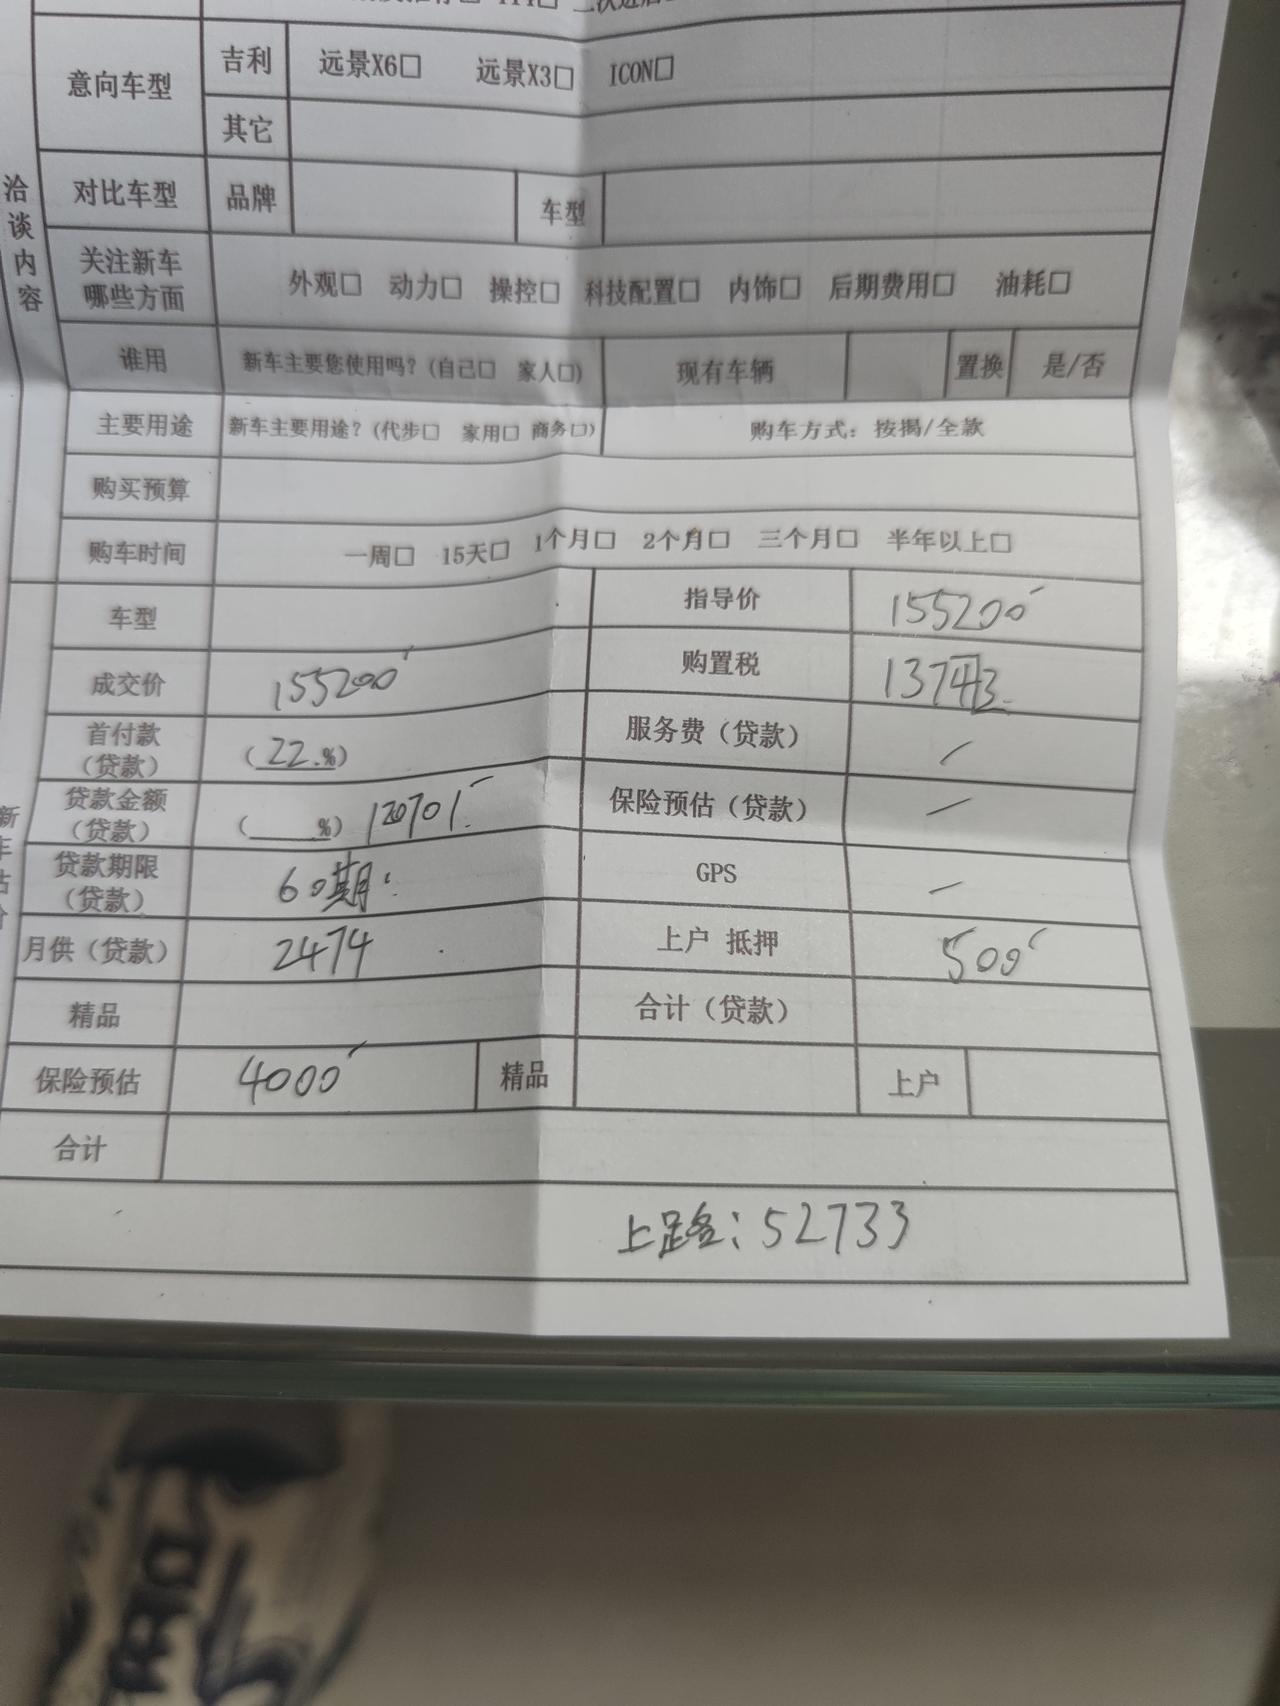 意向车型 吉利 远景X6□ 远景X3□ ICON□
其它
对比车型 品牌 车型
洽谈内容
关注新车哪些方面 外观□ 动力□ 操控□ 科技配置□ 内饰□ 后期费用□ 油耗□
谁用 新车主要您使用吗？(自己□ 家人□) 现有车辆 置换 是/否
主要用途 新车主要用途？(代步□ 家用□ 商务□)) 购车方式：按揭/全款
购买预算
购车时间 一周□ 15天□ 1个月□ 2个月□ 三个月□ 半年以上□
车型 指导价 155200
成交价 155200 购置税
首付款（贷款） (22.%) 服务费（贷款） /
贷款金额（贷款） (____%) 120701. 保险预估（贷款） —
贷款期限（贷款） 60期. GPS —
月供（贷款） 2474 上户 抵押 500
精品 合计（贷款）
保险预估 4000 精品 上户
合计
上路: 52733